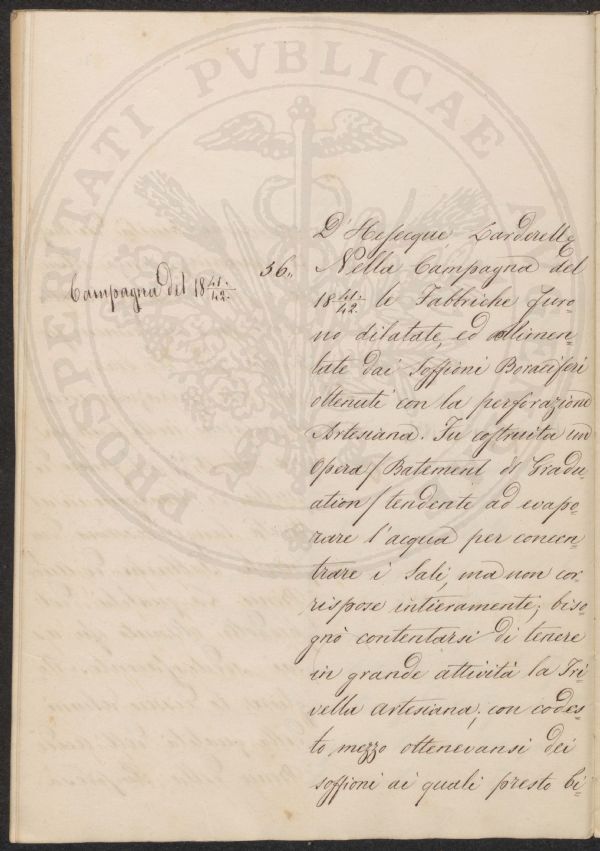 PROSPERITATI PVBLICAE A
D'Hesecque, Larderelle
56.,
Campagna del 18 41./42.
Nella Campagna del
18 41./42. le Fabbriche furo=
no dilatate, ed allimen=
tate dai Soffioni Boraciferi
ottenuti con la perforazione
Artesiana. Fu costruita un
Opera / Batement di Gradu=
ation / tendente ad evapo=
rare l'acqua per concen=
trare i Sali, ma non cor=
rispose intieramente; biso=
gnò contentarsi di tenere
in grande attività la Tri=
vella artesiana; con codes=
to mezzo ottenevansi dei
soffioni ai quali presto bi=